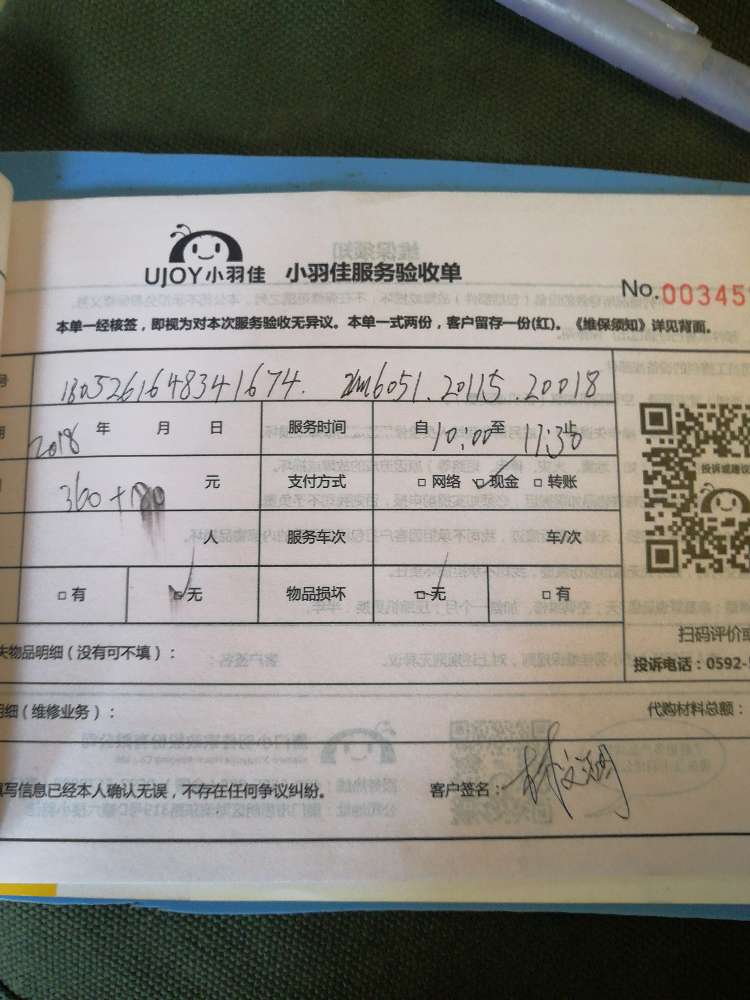 UJOY小羽佳 小羽佳服务验收单
No.00345
本单一经核签，即视为对本次服务验收无异议。本单一式两份，客户留存一份(红)。《维保须知》详见背面。
号 1805261648341674. 6051.20115.20018
2018 年 月 日 服务时间 自 10:00 至 11:30 止
360+180 元 支付方式 □ 网络 □ 现金 □ 转账
人 服务车次 车/次
□ 有 □ 无 物品损坏 □ 无 □ 有
投诉或建议
扫码评价或
失物品明细（没有可不填）：
投诉电话：0592-
明细（维修业务）： 代购材料总额：
填写信息已经本人确认无误，不存在任何争议纠纷。 客户签名：林文